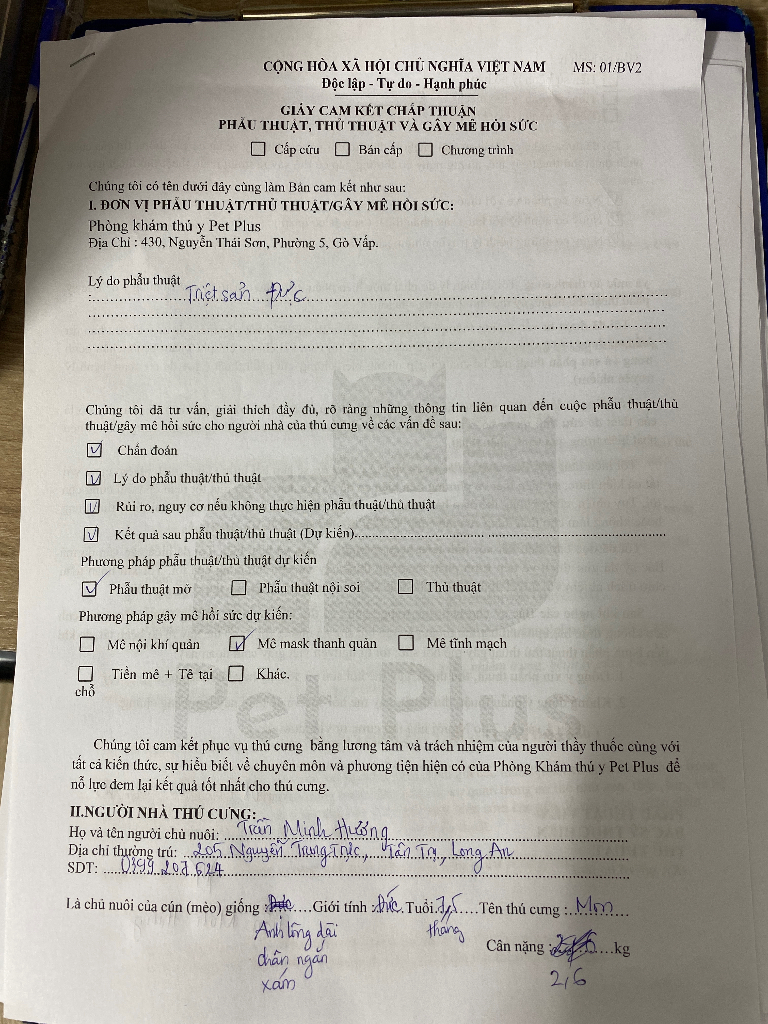 CỘNG HÒA XÃ HỘI CHỦ NGHĨA VIỆT NAM MS: 01/BV2
Độc lập - Tự do - Hạnh phúc
GIẤY CAM KẾT CHẤP THUẬN
PHẪU THUẬT, THỦ THUẬT VÀ GÂY MÊ HỒI SỨC
☐ Cấp cứu ☐ Bán cấp ☐ Chương trình
Chúng tôi có tên dưới đây cùng làm Bản cam kết như sau:
I. ĐƠN VỊ PHẪU THUẬT/THỦ THUẬT/GÂY MÊ HỒI SỨC:
Phòng khám thú y Pet Plus
Địa Chỉ : 430, Nguyễn Thái Sơn, Phường 5, Gò Vấp.
Lý do phẫu thuật
: Triệt sản Đực
Chúng tôi đã tư vấn, giải thích đầy đủ, rõ ràng những thông tin liên quan đến cuộc phẫu thuật/thủ
thuật/gây mê hồi sức cho người nhà của thú cưng về các vấn đề sau:
☑ Chẩn đoán
☑ Lý do phẫu thuật/thủ thuật
☑ Rủi ro, nguy cơ nếu không thực hiện phẫu thuật/thủ thuật
☑ Kết quả sau phẫu thuật/thủ thuật (Dự kiến)
Phương pháp phẫu thuật/thủ thuật dự kiến
☑ Phẫu thuật mở ☐ Phẫu thuật nội soi ☐ Thủ thuật
Phương pháp gây mê hồi sức dự kiến:
☐ Mê nội khí quản ☑ Mê mask thanh quản ☐ Mê tĩnh mạch
☐ Tiền mê + Tê tại ☐ Khác.
chỗ
Pet Plus
Chúng tôi cam kết phục vụ thú cưng bằng lương tâm và trách nhiệm của người thầy thuốc cùng với
tất cả kiến thức, sự hiểu biết về chuyên môn và phương tiện hiện có của Phòng Khám thú y Pet Plus để
nỗ lực đem lại kết quả tốt nhất cho thú cưng.
II.NGƯỜI NHÀ THÚ CƯNG:
Họ và tên người chủ nuôi: Trần Minh Hương
Địa chỉ thường trú: 205 Nguyễn Trung Trực, Tân Trụ, Long An
SDT: 0399 207 624
Là chủ nuôi của cún (mèo) giống : Giới tính : Đực. Tuổi 7,5 Tên thú cưng : Mon
Anh lông dài tháng
chân ngắn Cân nặng : kg
xám 2,6